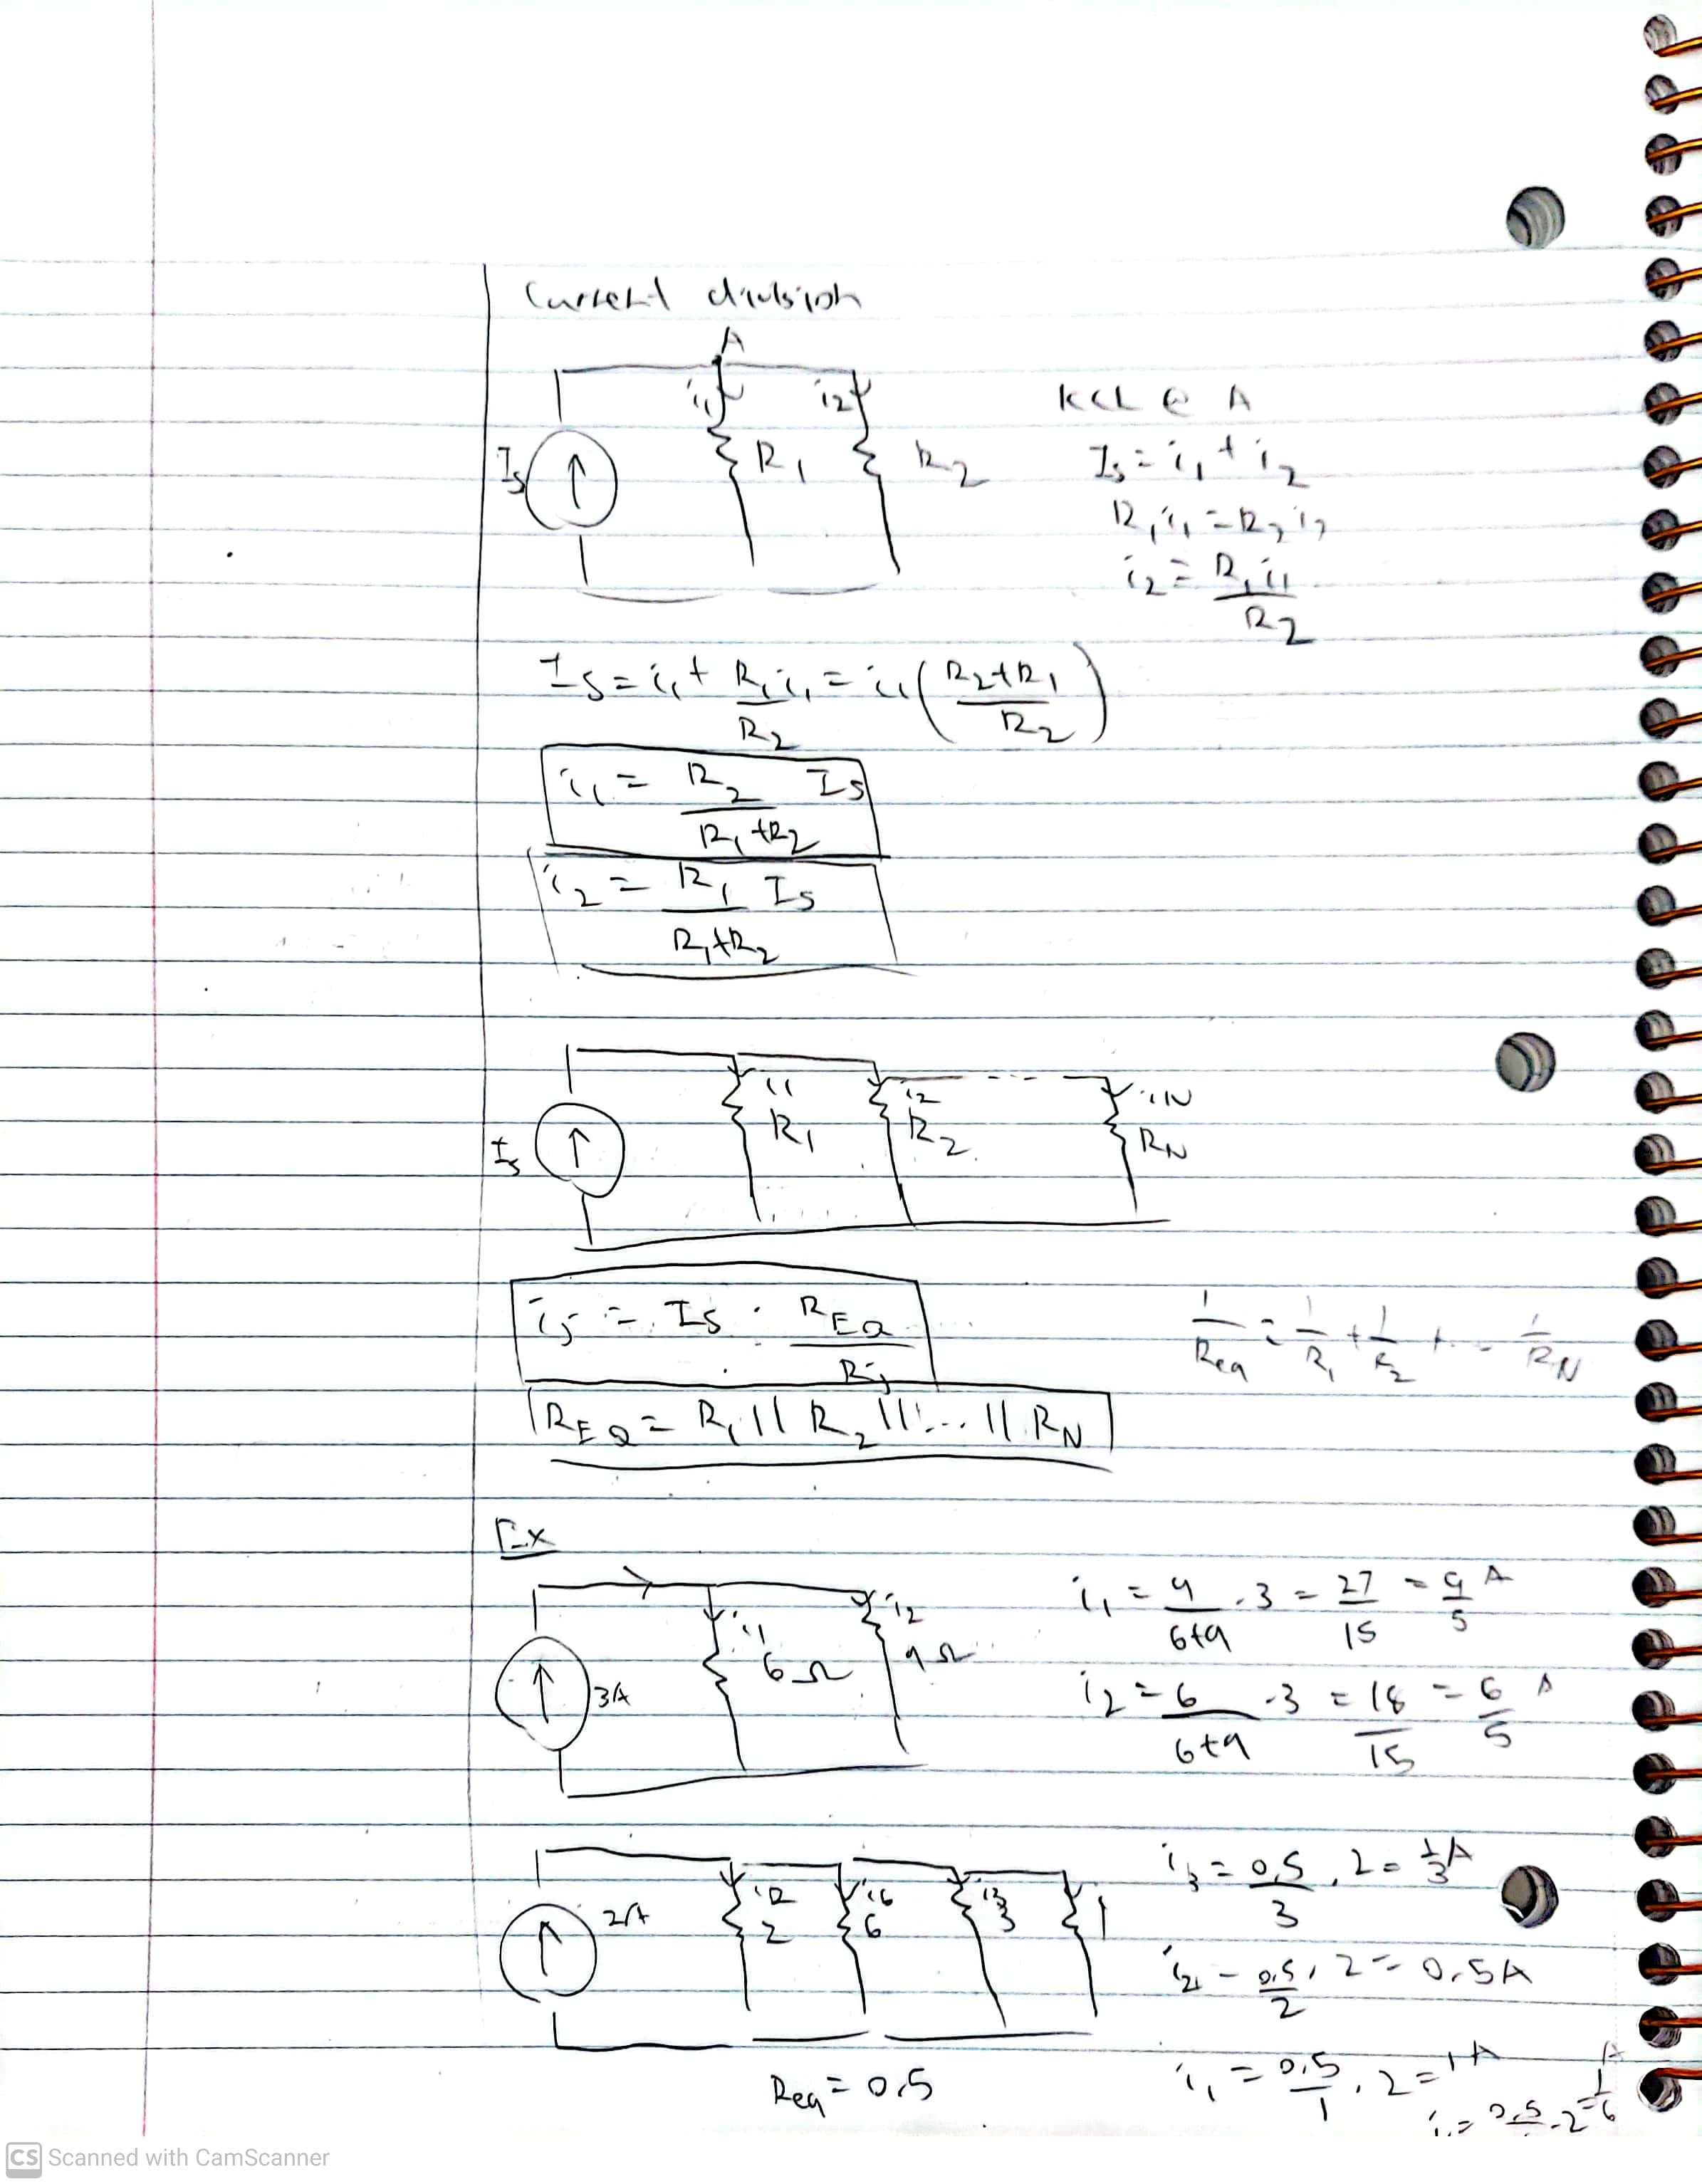 Current division
A
i1 i2
Is R1 R2
KCL @ A
Is = i1 + i2
R1 i1 = R2 i2
i2 = R1 i1 / R2
Is = i1 + R1 i1 / R2 = i1 ( R2 + R1 / R2 )
i1 = R2 / R1 + R2 Is
i2 = R1 / R1 + R2 Is
i1 i2 iN
Is R1 R2 RN
ij = Is · REQ / Rj
1 / Req = 1 / R1 + 1 / R2 + - - 1 / RN
REQ = R1 || R2 || ... || RN
Ex
i1 i2
3A 6Ω 9Ω
i1 = 9 / 6+9 · 3 = 27 / 15 = 9 / 5 A
i2 = 6 / 6+9 · 3 = 18 / 15 = 6 / 5 A
i2 i6 i3
2A 2 6 3 1
i3 = 0.5 / 3 · 2 = 1/3 A
i2 = 0.5 / 2 · 2 = 0.5A
i1 = 0.5 / 1 · 2 = 1A
Req = 0.5
0.5 · 2 = 1/6 A
CS Scanned with CamScanner